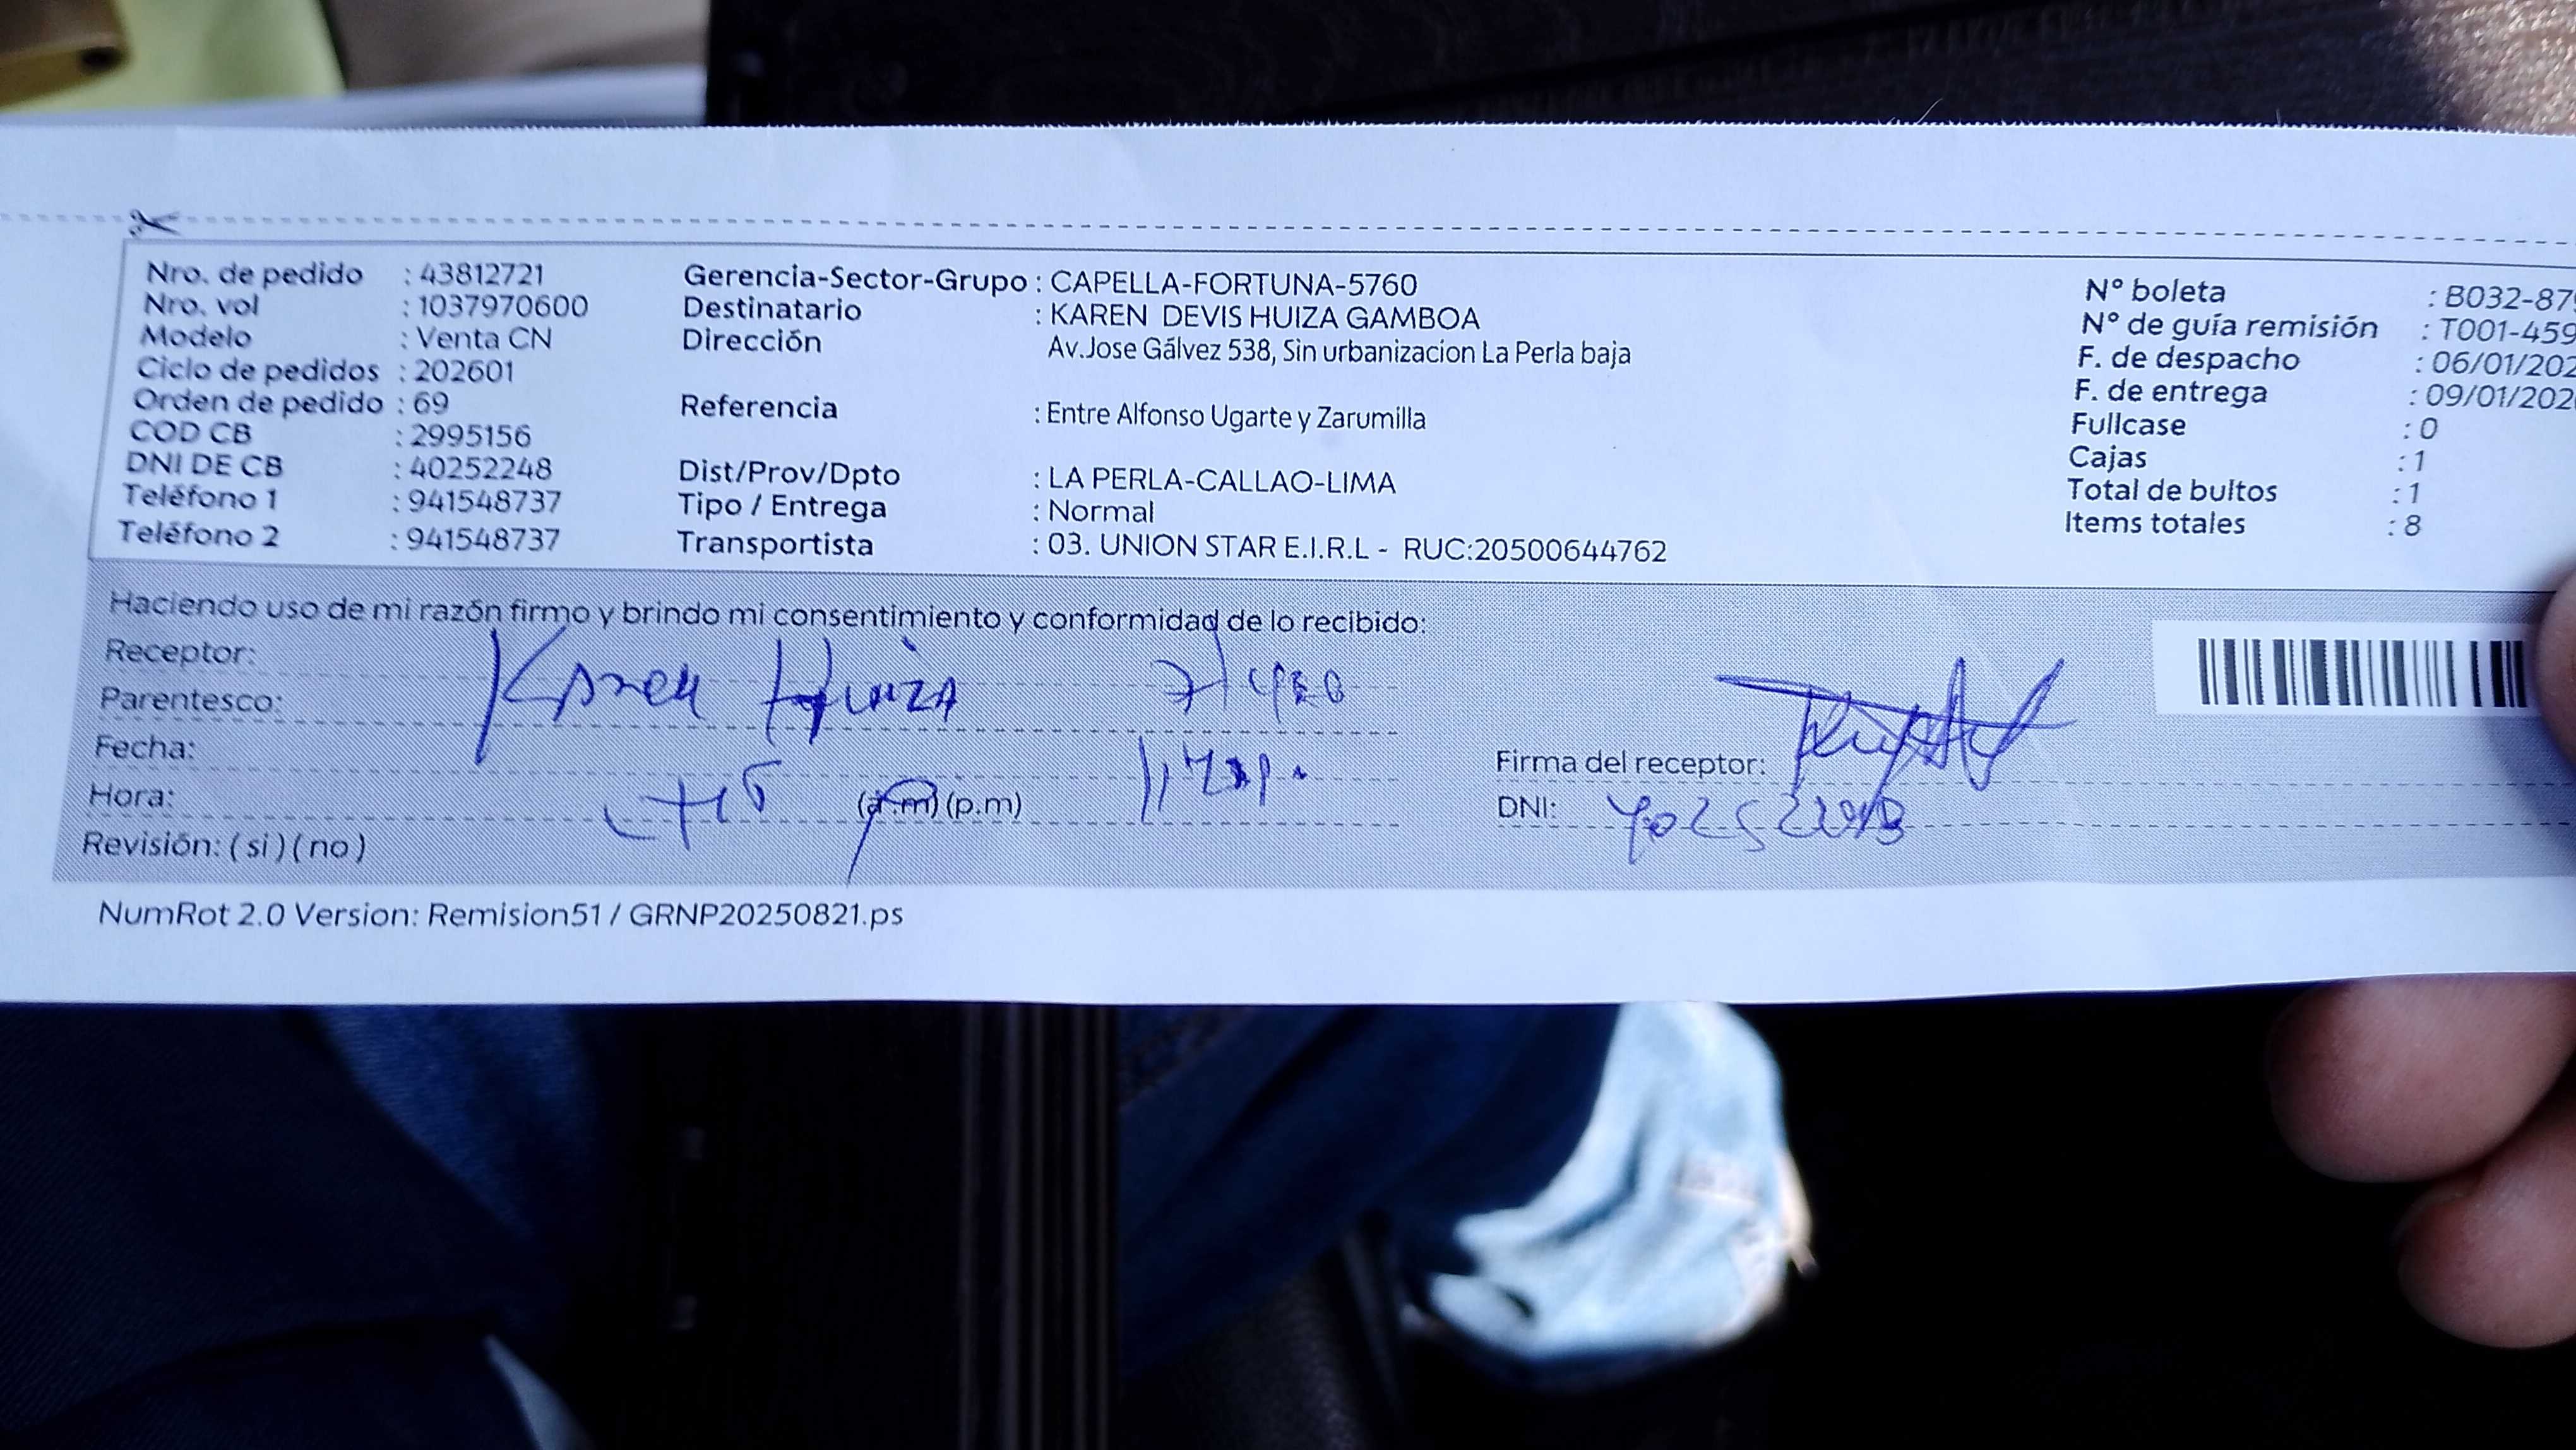 Nro. de pedido : 43812721
Nro. vol : 1037970600
Modelo : Venta CN
Ciclo de pedidos : 202601
Orden de pedido : 69
COD CB : 2995156
DNI DE CB : 40252248
Teléfono 1 : 941548737
Teléfono 2 : 941548737
Gerencia-Sector-Grupo : CAPELLA-FORTUNA-5760
Destinatario : KAREN DEVIS HUIZA GAMBOA
Dirección Av.Jose Gálvez 538, Sin urbanizacion La Perla baja
Referencia : Entre Alfonso Ugarte y Zarumilla
Dist/Prov/Dpto : LA PERLA-CALLAO-LIMA
Tipo / Entrega : Normal
Transportista : 03. UNION STAR E.I.R.L - RUC:20500644762
N° boleta : B032-87
N° de guía remisión : T001-459
F. de despacho : 06/01/202
F. de entrega : 09/01/202
Fullcase : 0
Cajas : 1
Total de bultos : 1
Items totales : 8
Haciendo uso de mi razón firmo y brindo mi consentimiento y conformidad de lo recibido:
Receptor: Karen Huiza
Parentesco:
Fecha:
Hora: (a.m) (p.m)
Revisión: ( si ) ( no )
Firma del receptor:
DNI: 40252248
NumRot 2.0 Version: Remision51 / GRNP20250821.ps